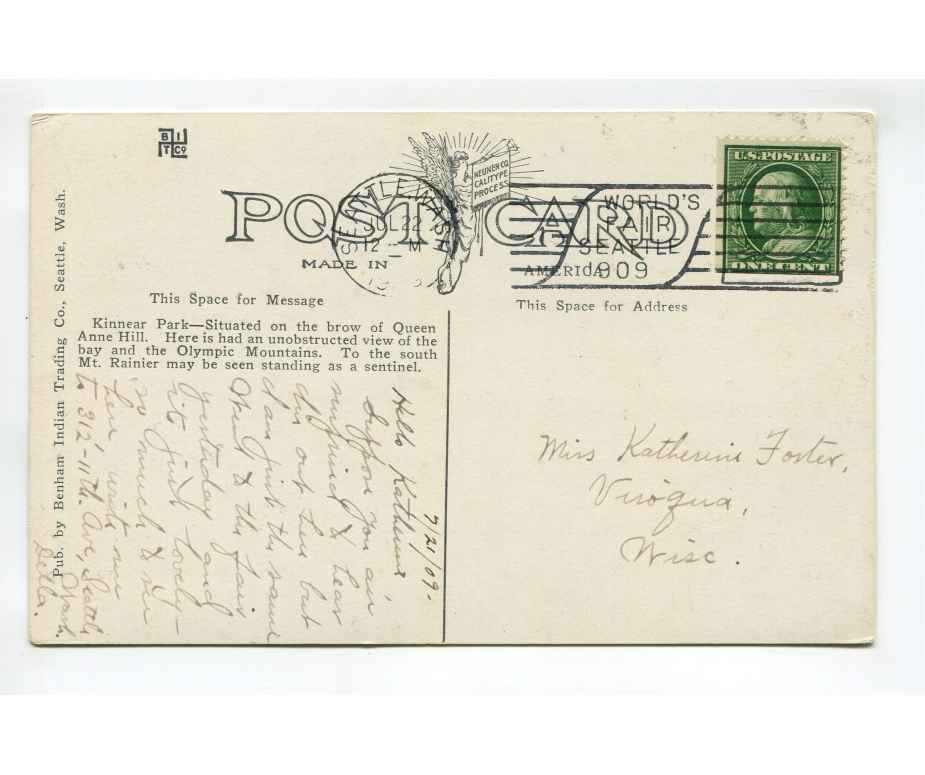 B I
T Co
NEUNER CO.
CALITYPE
PROCESS.
U.S. POSTAGE
ONE CENT
POST CARD
MADE IN AMERICA
SEATTLE, WASH.
JUL 22
12 M
WORLD'S
FAIR
SEATTLE
1909
This Space for Message
This Space for Address
Kinnear Park—Situated on the brow of Queen
Anne Hill. Here is had an unobstructed view of the
bay and the Olympic Mountains. To the south
Mt. Rainier may be seen standing as a sentinel.
Pub. by Benham Indian Trading Co., Seattle, Wash.
7/21/09-
Hello Katherine
Suppose you air
surprised to hear
am out here but
am just the same
Went to the fair
yesterday and
it is just lovely-
so much to see
here write me
to 312-11th. Ave, Seattle
Wash.
Della.
Miss Katherine Foster,
Viroqua,
Wisc.